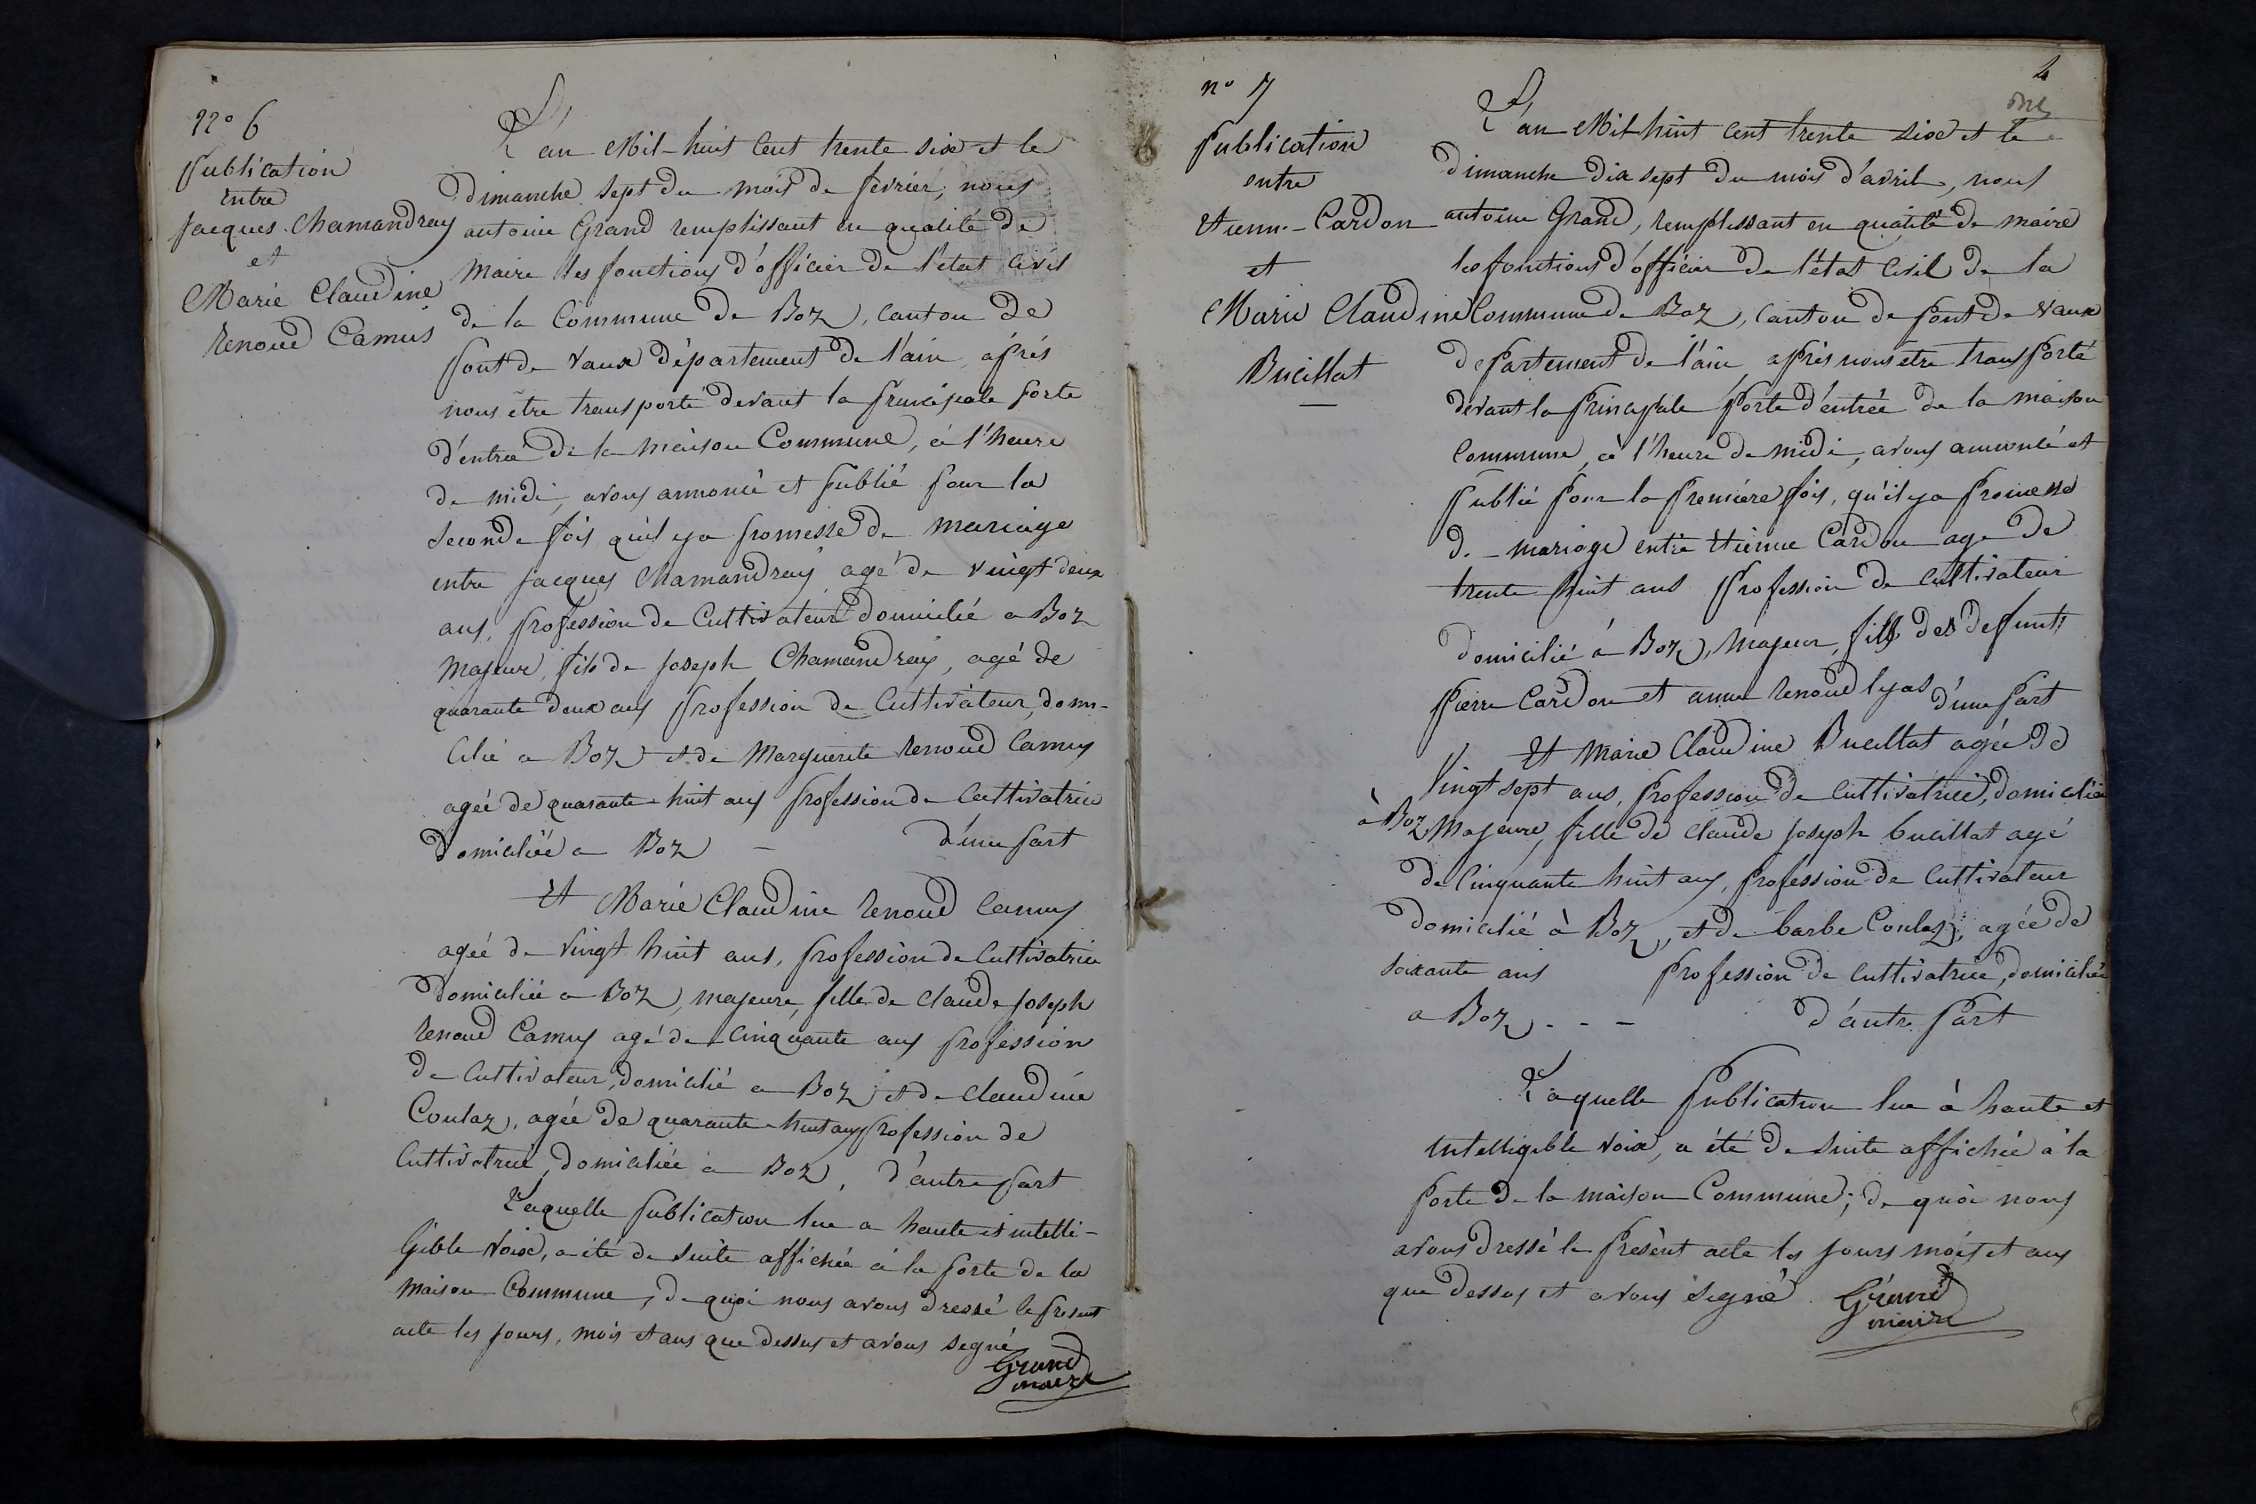 n° 6
publication
entre
Jacques Chamandray
et
Marie Claudine
Renoud Camus
L'an Mil-huit Cent trente six et le
dimanche sept du mois de fevrier, nous
antoine Grand remplissant en qualité de
Maire les fonctions d'officier de l'état Civil
de la Commune de Boz, canton de
pont de vaux département de l'ain, après
nous être transporté devant la principale porte
d'entrée de la maison Commune, à l'heure
de midi, avons annoncé et publié pour la
seconde fois qu'il y a promesse de mariage
entre Jacques Chamandray agé de vingt deux
ans, profession de Cultivateur domicilié a Boz
Majeur, fils de Joseph Chamandray, agé de
quarante deux ans profession de Cultivateur, domi-
cilié a Boz et de Marguerite Renoud Camus
agée de quarante-huit ans profession de Cultivatrice
domiciliée a Boz – d'une part
Et Marie Claudine Renoud Camus
agée de vingt huit ans, profession de Cultivatrice
domiciliée a Boz, majeure, fille de Claude Joseph
Renoud Camus agé de cinquante ans profession
de Cultivateur, domicilié a Boz et de Claudine
Coulaz, agée de quarante-huit ans profession de
Cultivatrice, domiciliée a Boz, d'autre part
Laquelle publication lue a haute et intelli-
gible voix, a été de suite affichée à la porte de la
Maison Commune, de quoi nous avons dressé le present
acte les jours, mois et ans que dessus et avons segné
Grand
maire
4
n° 7
publication
entre
Etienne Cardon
et
Marie Claudine
Bucillat
L'an Mil-huit cent trente six et le
dimanche dix sept du mois d'avril, nous
antoine Grand, remplissant en qualité de maire
les fonctions d'officier de l'état Civil de la
Commune de Boz, canton de pont de vaux
departement de l'ain, après nous être transporté
devant la principale porte d'entrée de la maison
Commune, à l'heure de midi, avons annoncé et
publié pour la première fois, qu'il y a promesse
de mariage entre Etienne Cardon age de
trente huit ans profession de cultivateur
domicilié à Boz, Majeur, fils des defunts
Pierre Cardon et anne Renoud lyas d'une part
Et Marie Claudine Bucillat agée de
Vingt sept ans, profession de Cultivatrice, domiciliée
à Boz, Majeure, fille de Claude Joseph bucillat agé
de Cinquante huit ans, profession de Cultivateur
domicilié à Boz, et de barbe Coulaz, agée de
soixante ans profession de cultivatrice, domiciliée
a Boz - - - d'autre part
Laquelle publication lue à haute et
intelligible voix, a été de suite affichée à la
porte de la maison Commune; de quoi nous
avons dressé le présent acte les jours mois et ans
que dessus et avons segné
Grand
maire